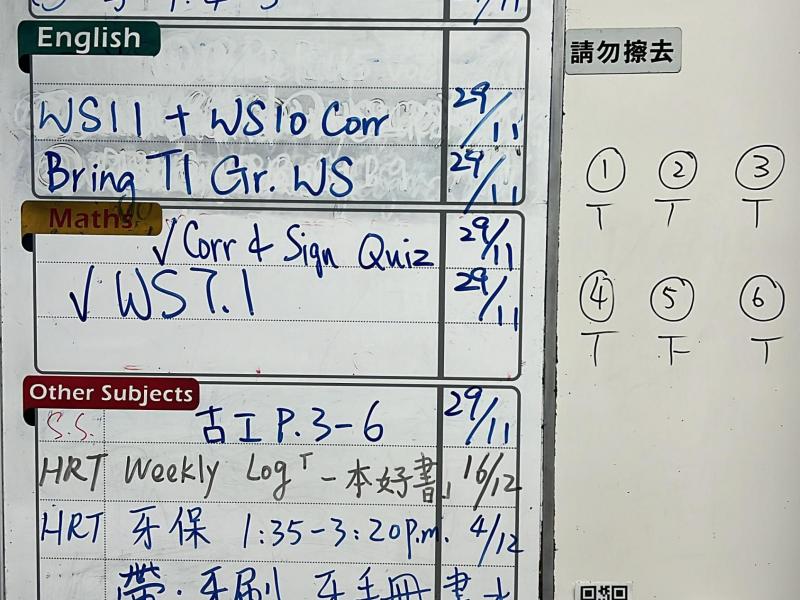 English
WS11 + WS10 Corr 29/11
Bring T1 Gr. WS 29/11
Maths
√ Corr & Sign Quiz 29/11
√ WS7.1 29/11
Other Subjects
S.S. 古工 P.3-6 29/11
HRT Weekly Log「一本好書」 16/12
HRT 牙保 1:35-3:20p.m. 4/12
帶·牙刷 牙手冊
請勿擦去
① ② ③
T T T
④ ⑤ ⑥
T 下 T